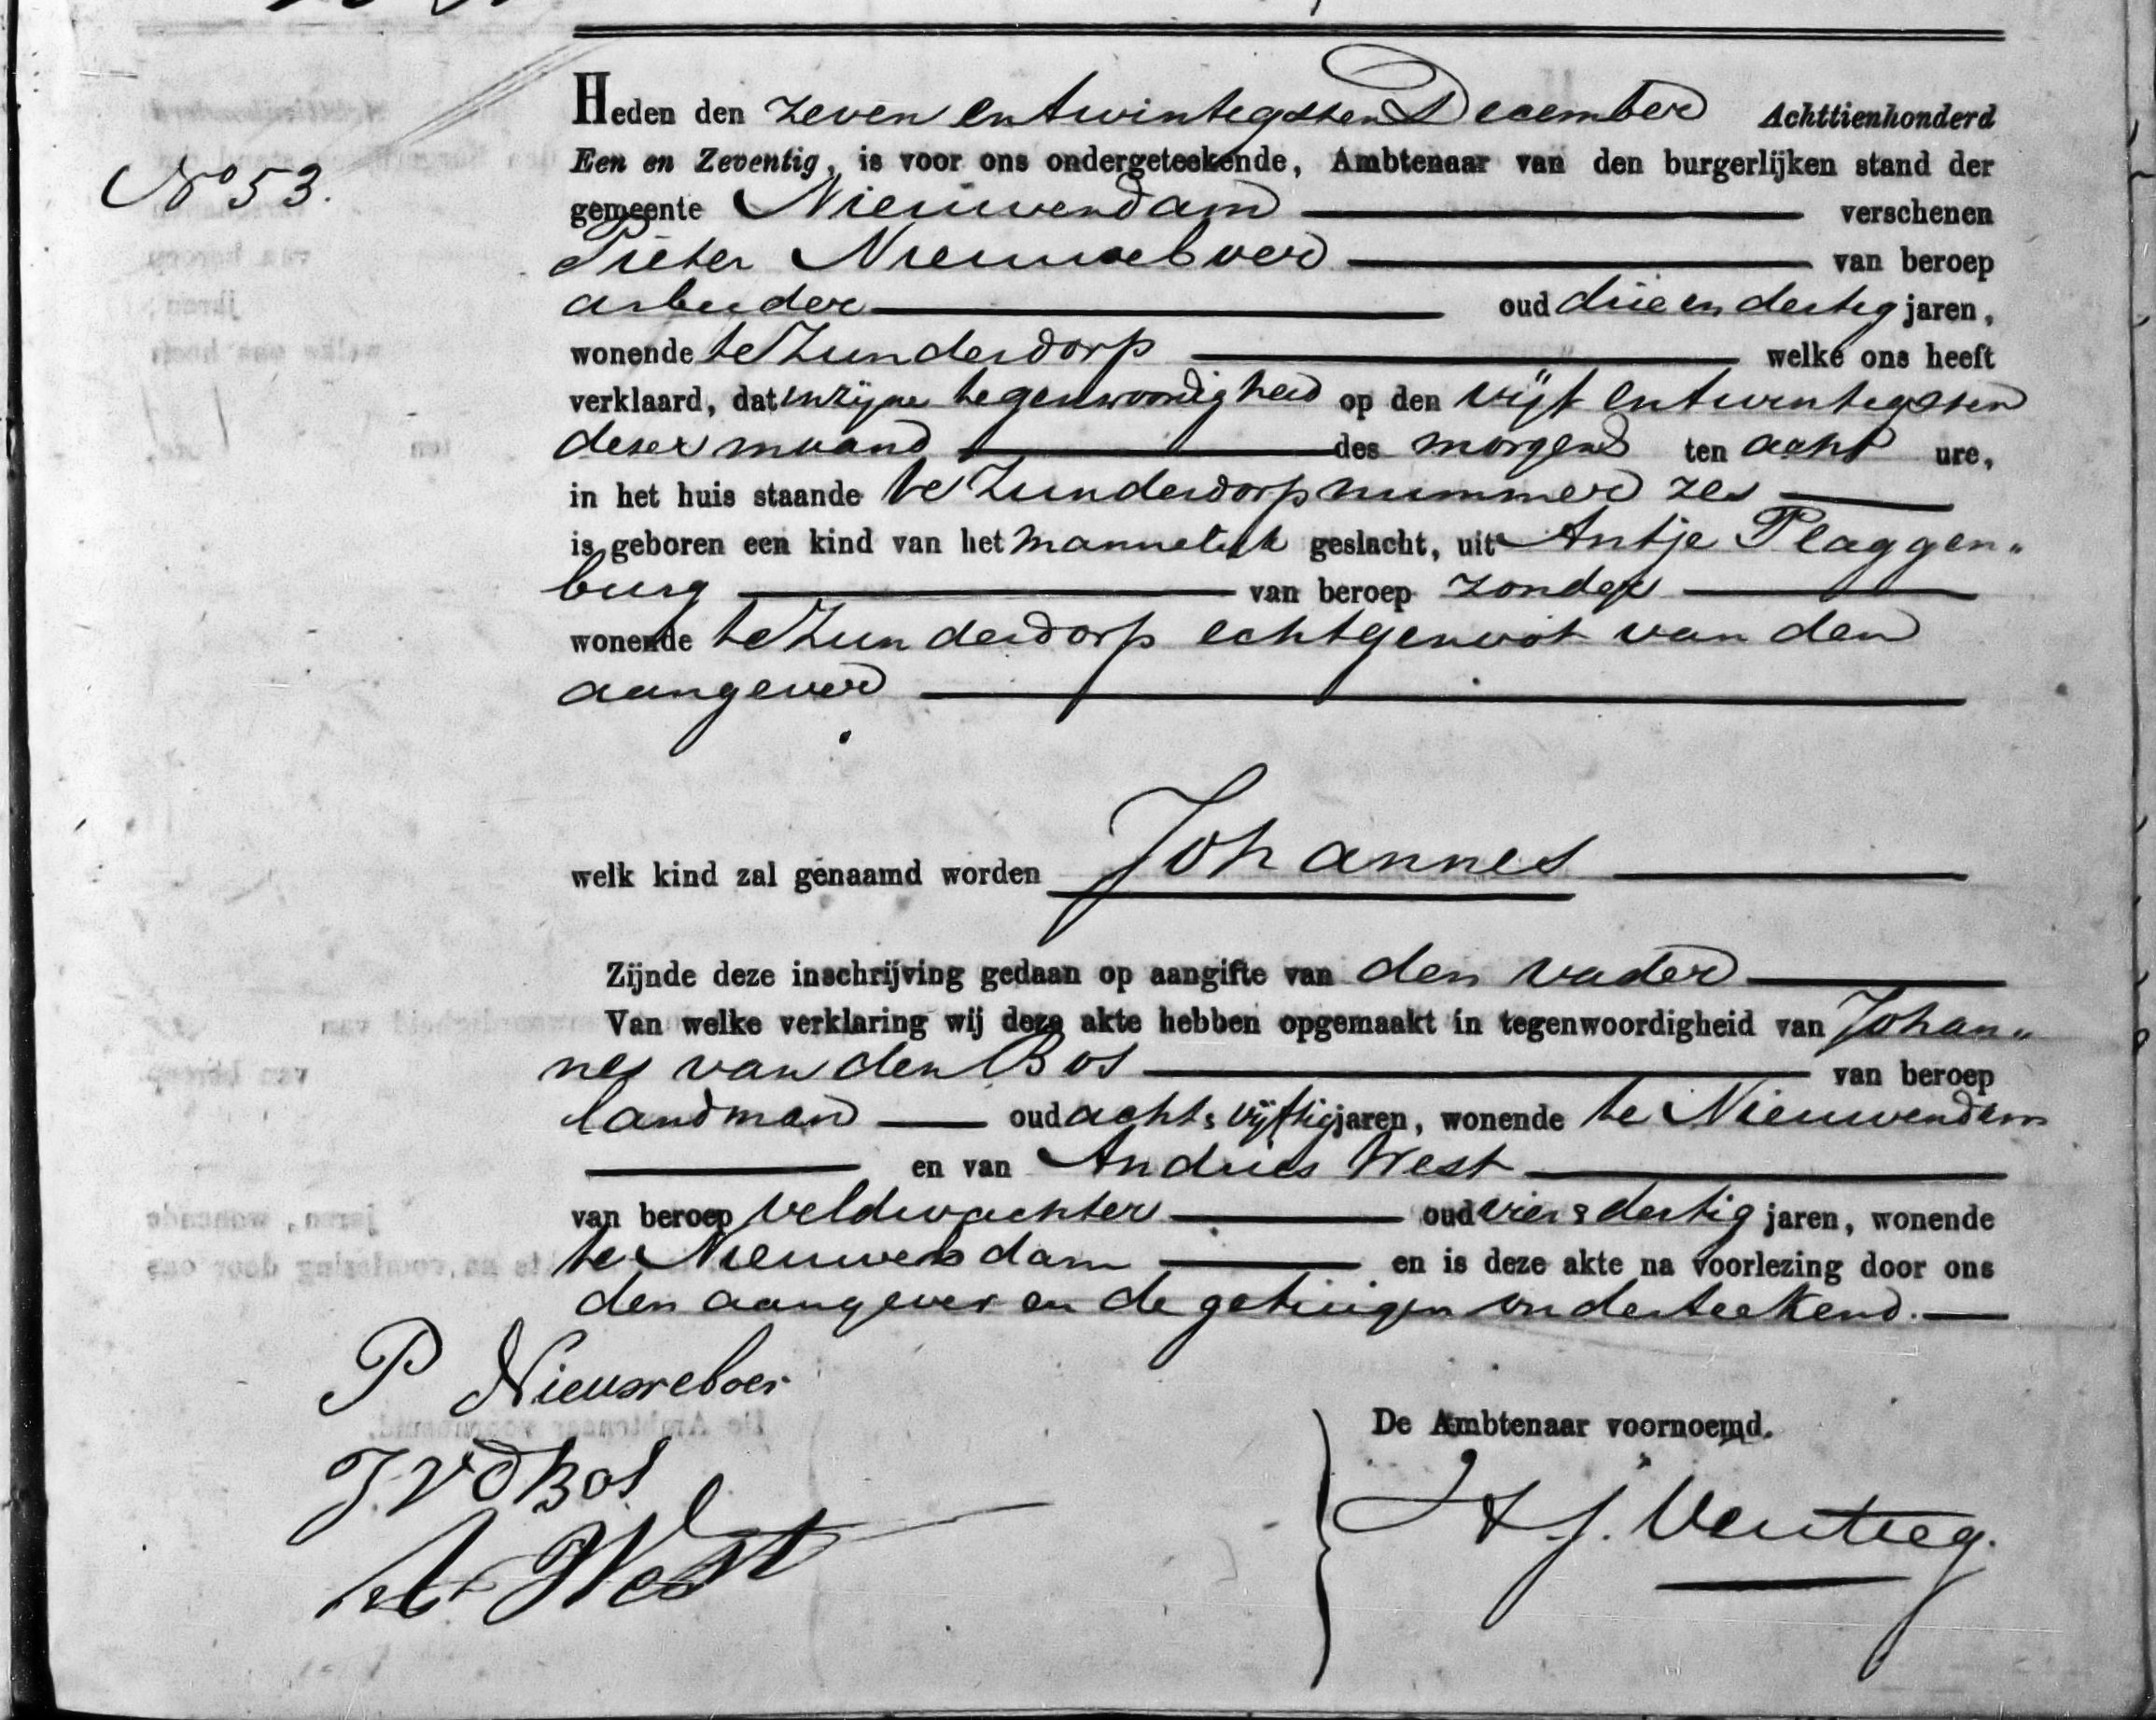 Heden den zeven entwintigsten December Achttienhonderd
Een en Zeventig, is voor ons ondergeteekende, Ambtenaar van den burgerlijken stand der
No 53.
gemeente Nieuwendam verschenen
Pieter Nieuweboer van beroep
arbeider oud drie en dertig jaren,
wonende te Zunderdorp welke ons heeft
verklaard, dat in zijne tegenwoordigheid op den vijf entwintigsten
dezer maand des morgens ten acht ure,
in het huis staande te Zunderdorp nummer zes
is geboren een kind van het mannelijk geslacht, uit Antje Plaggen„
burg van beroep zonder
wonende te Zunderdorp echtgenoot van den
aangever
welk kind zal genaamd worden Johannes
Zijnde deze inschrijving gedaan op aangifte van den vader
Van welke verklaring wij deze akte hebben opgemaakt in tegenwoordigheid van Johan„
nes van den Bos van beroep
landman oud acht & vijftig jaren, wonende te Nieuwendam
en van Andries West
van beroep veldwachter oud vier & dertig jaren, wonende
te Nieuwendam en is deze akte na voorlezing door ons
den aangever en de getuigen onderteekend.
P Nieuweboer
De Ambtenaar voornoemd.
J. v d Bos
A West
J. Venteeg.